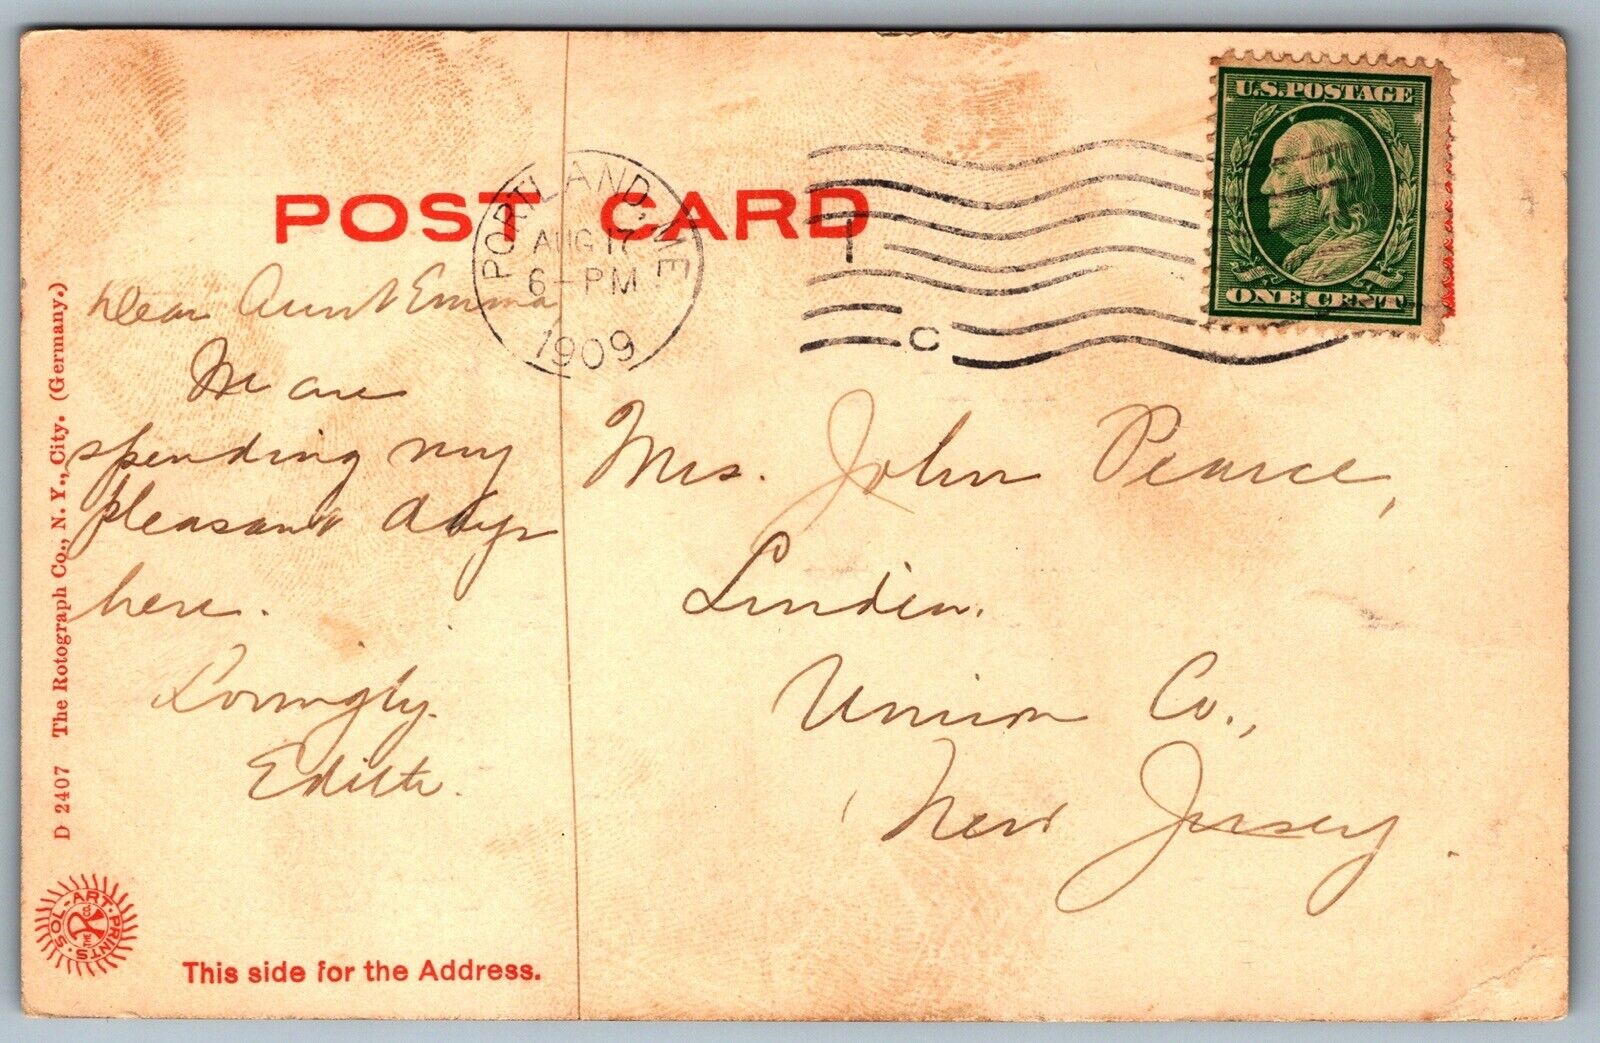 POST CARD
PORTLAND, ME
AUG 17
6-PM
1909
I
C
U.S. POSTAGE
ONE CENT
Dear Aunt Emma
We are
spending my
pleasant days
here.
Lovingly.
Edith.
Mrs. John Pearce,
Linden.
Union Co.,
New Jersey.
D 2407 The Rotograph Co., N. Y., City. (Germany.)
SOL-ART-PRINTS
THE
This side for the Address.